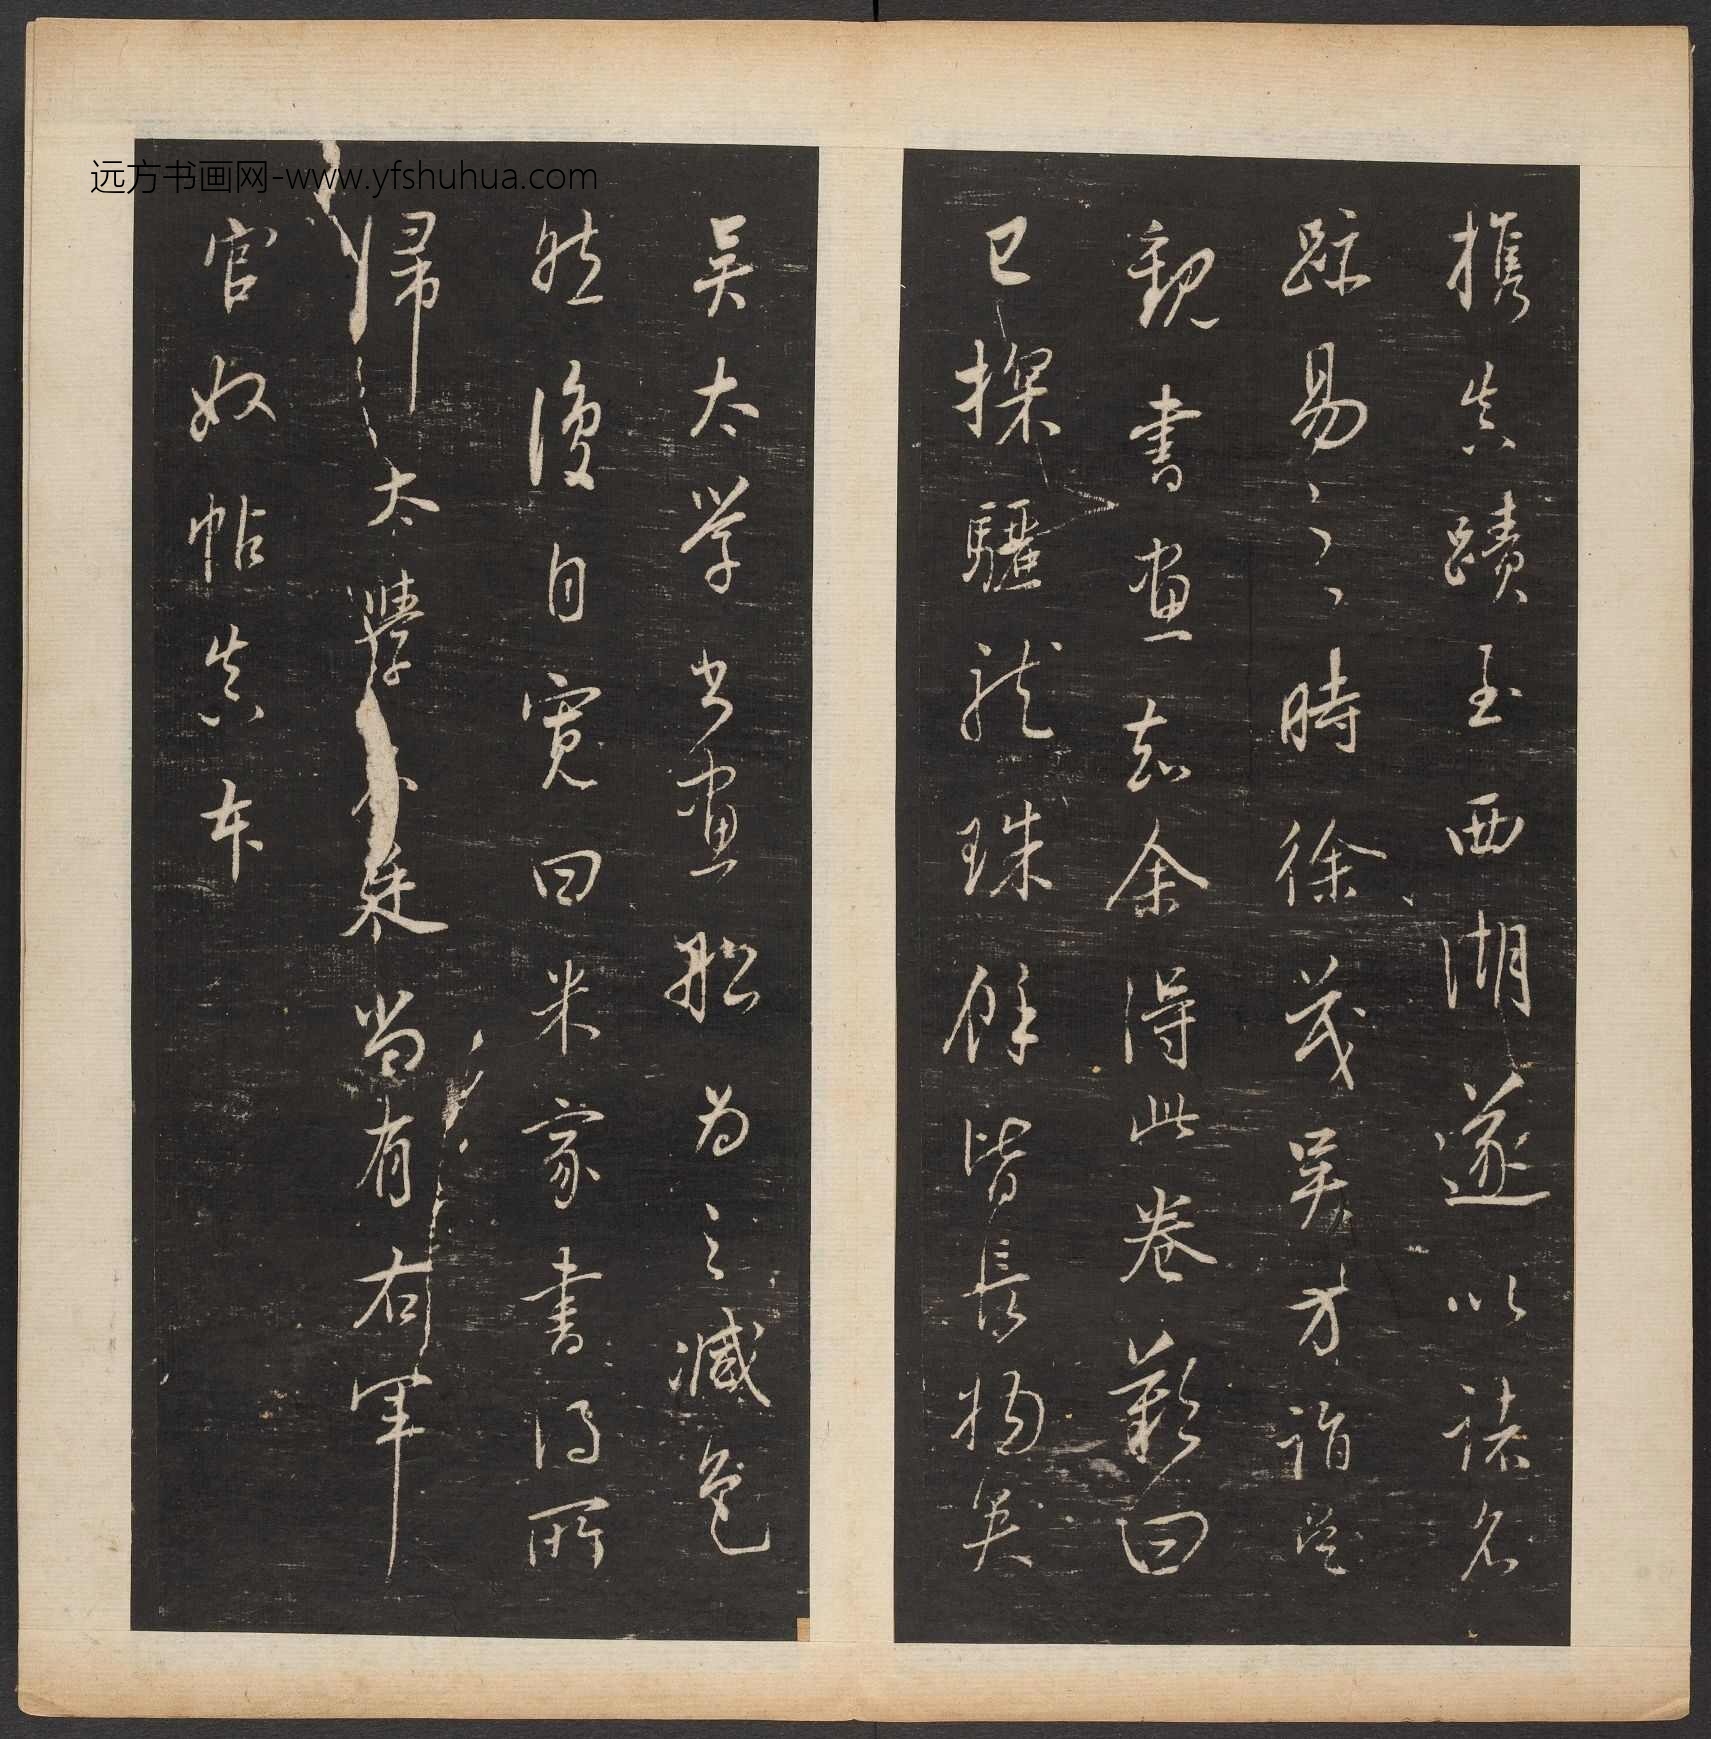 远方书画网-www.yfshuhua.com
携真蹟至西湖遂以诸名
跡易之之時徐茂吴方詣吴
觀書画知余得此卷歎曰
已探驪龍珠餘皆長物矣
吴太学書画船為之減色
然後自寬曰米家書得所
歸太學名士来尚有右軍
官奴帖真本